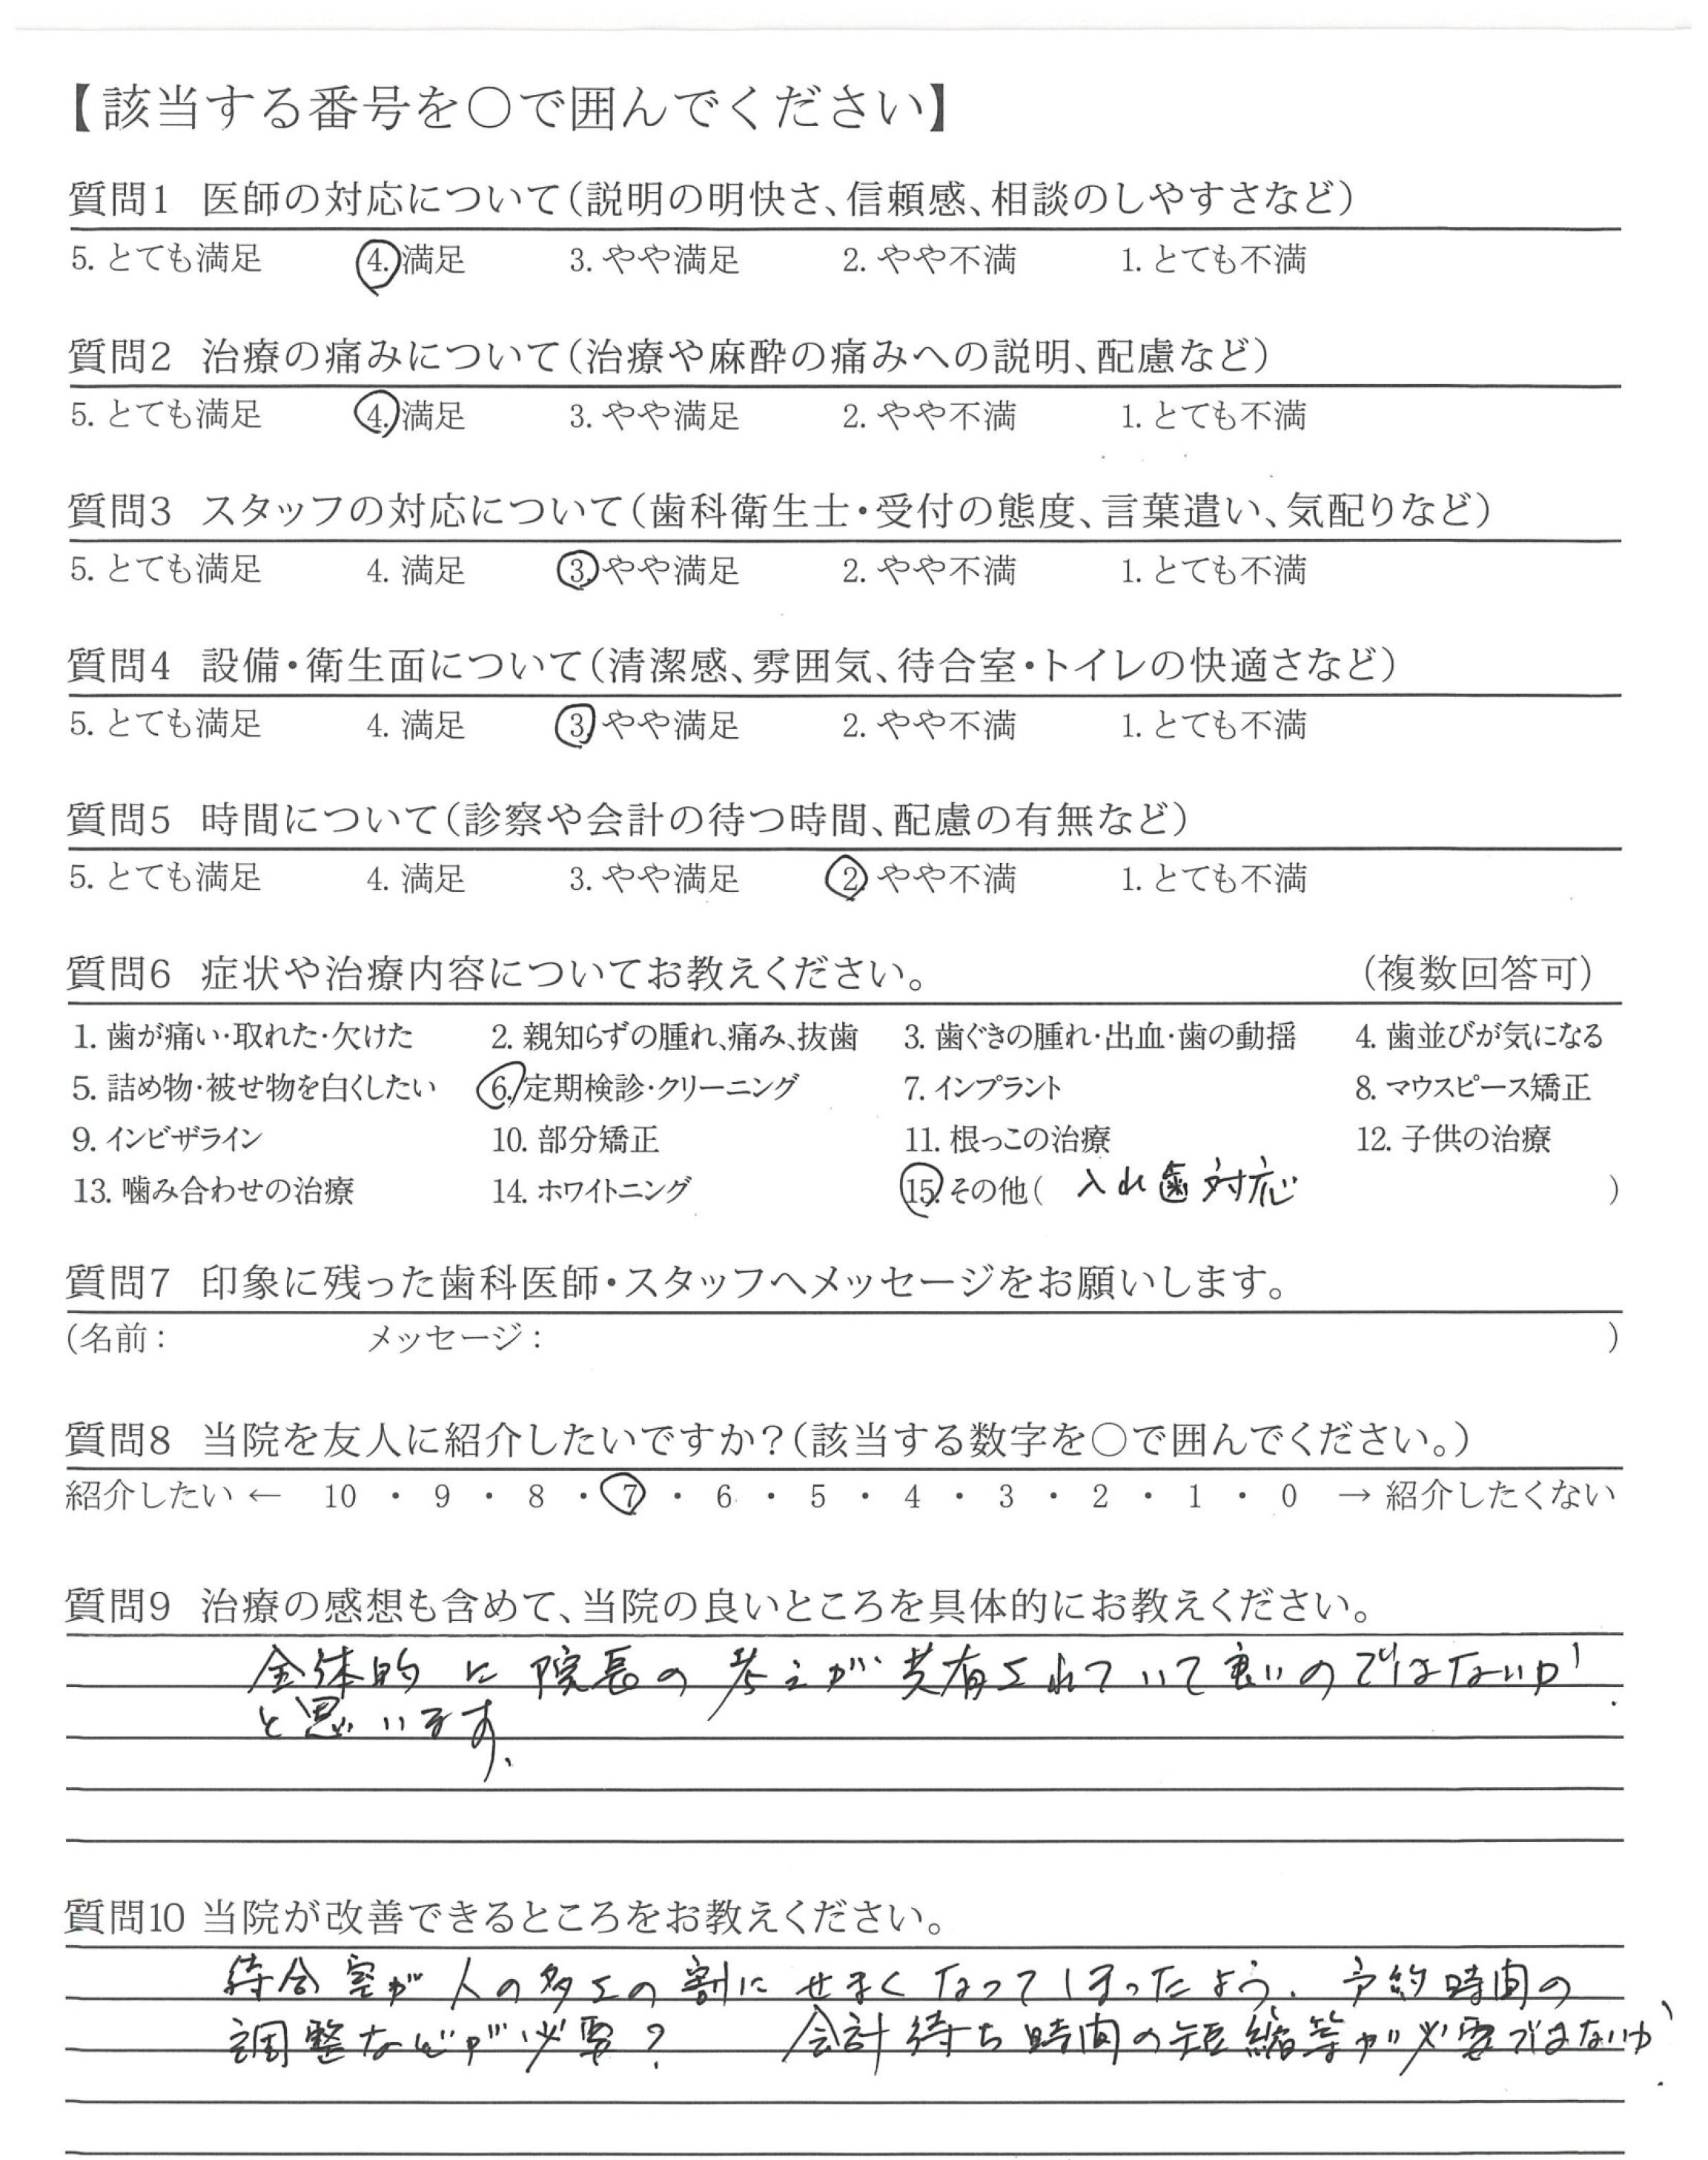 【該当する番号を○で囲んでください】
質問1 医師の対応について(説明の明快さ、信頼感、相談のしやすさなど)
5. とても満足 4. 満足 3. やや満足 2. やや不満 1. とても不満
質問2 治療の痛みについて(治療や麻酔の痛みへの説明、配慮など)
5. とても満足 4. 満足 3. やや満足 2. やや不満 1. とても不満
質問3 スタッフの対応について(歯科衛生士・受付の態度、言葉遣い、気配りなど)
5. とても満足 4. 満足 3. やや満足 2. やや不満 1. とても不満
質問4 設備・衛生面について(清潔感、雰囲気、待合室・トイレの快適さなど)
5. とても満足 4. 満足 3. やや満足 2. やや不満 1. とても不満
質問5 時間について(診察や会計の待つ時間、配慮の有無など)
5. とても満足 4. 満足 3. やや満足 2. やや不満 1. とても不満
質問6 症状や治療内容についてお教えください。 (複数回答可)
1. 歯が痛い・取れた・欠けた 2. 親知らずの腫れ、痛み、抜歯 3. 歯ぐきの腫れ・出血・歯の動揺 4. 歯並びが気になる
5. 詰め物・被せ物を白くしたい 6. 定期検診・クリーニング 7. インプラント 8. マウスピース矯正
9. インビザライン 10. 部分矯正 11. 根っこの治療 12. 子供の治療
13. 噛み合わせの治療 14. ホワイトニング 15. その他( 入れ歯対応 )
質問7 印象に残った歯科医師・スタッフへメッセージをお願いします。
(名前: メッセージ: )
質問8 当院を友人に紹介したいですか?(該当する数字を○で囲んでください。)
紹介したい ← 10 ・ 9 ・ 8 ・ 7 ・ 6 ・ 5 ・ 4 ・ 3 ・ 2 ・ 1 ・ 0 → 紹介したくない
質問9 治療の感想も含めて、当院の良いところを具体的にお教えください。
全体的に院長の考えが共有されていて良いのではないか
と思います。
質問10 当院が改善できるところをお教えください。
待合室が人の多さの割にせまくなってしまったよう。予約時間の
調整などが必要? 会計待ち時間の短縮等が必要ではないか。